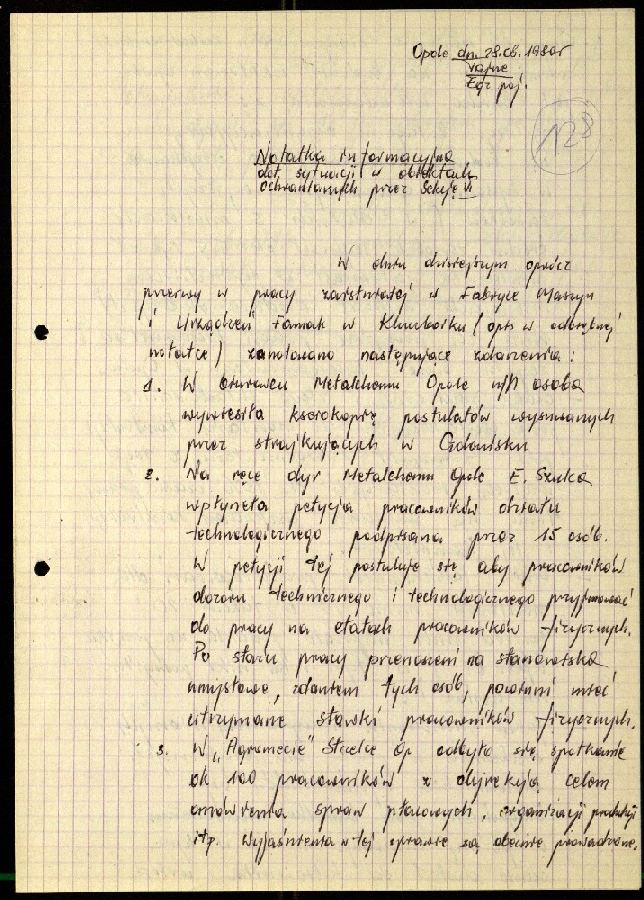 Opole dn. 28.08.1980r
Tajne
Egz poj.
128
Notatka informacyjna
dot. sytuacji w obiektach
ochranianych przez Sekcję VI
W dniu dzisiejszym oprócz
przerwy w pracy zaistniałej w Fabryce Maszyn
i Urządzeń Famak w Kluczborku (opis w odrębnej
notatce) zanotowano następujące zdarzenia:
1. W Ozimku Metalchemu Opole n/n osoba
wywiesiła kserokopię postulatów wysuwanych
przez strajkujących w Gdańsku
2. Na ręce dyr Metalchemu Opole E. Szulca
wpłynęła petycja pracowników działu
technologicznego podpisana przez 15 osób.
W petycji tej postuluje się aby pracowników
dozoru technicznego i technologicznego przyjmować
do pracy na etatach pracowników fizycznych.
Po stażu pracy przenoszeni na stanowiska
umysłowe, zdaniem tych osób, powinni mieć
utrzymane stawki pracowników fizycznych.
3. W "Agromecie" Strzelce Op odbyło się spotkanie
ok 100 pracowników z dyrekcją celem
omówienia spraw płacowych, organizacji produkcji
itp. Wyjaśnienia w tej sprawie są obecnie prowadzone.